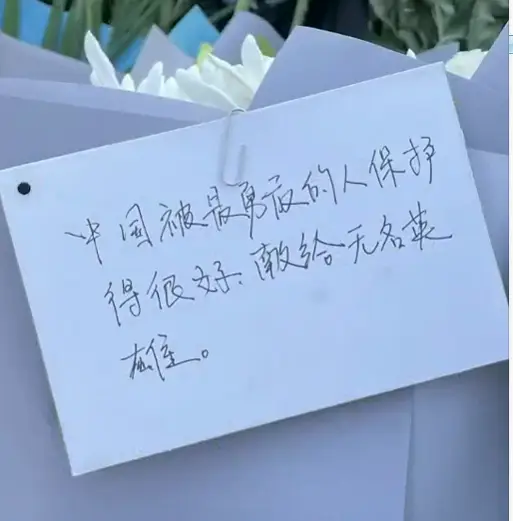 中国被最勇敢的人保护
得很好、献给无名英
雄。